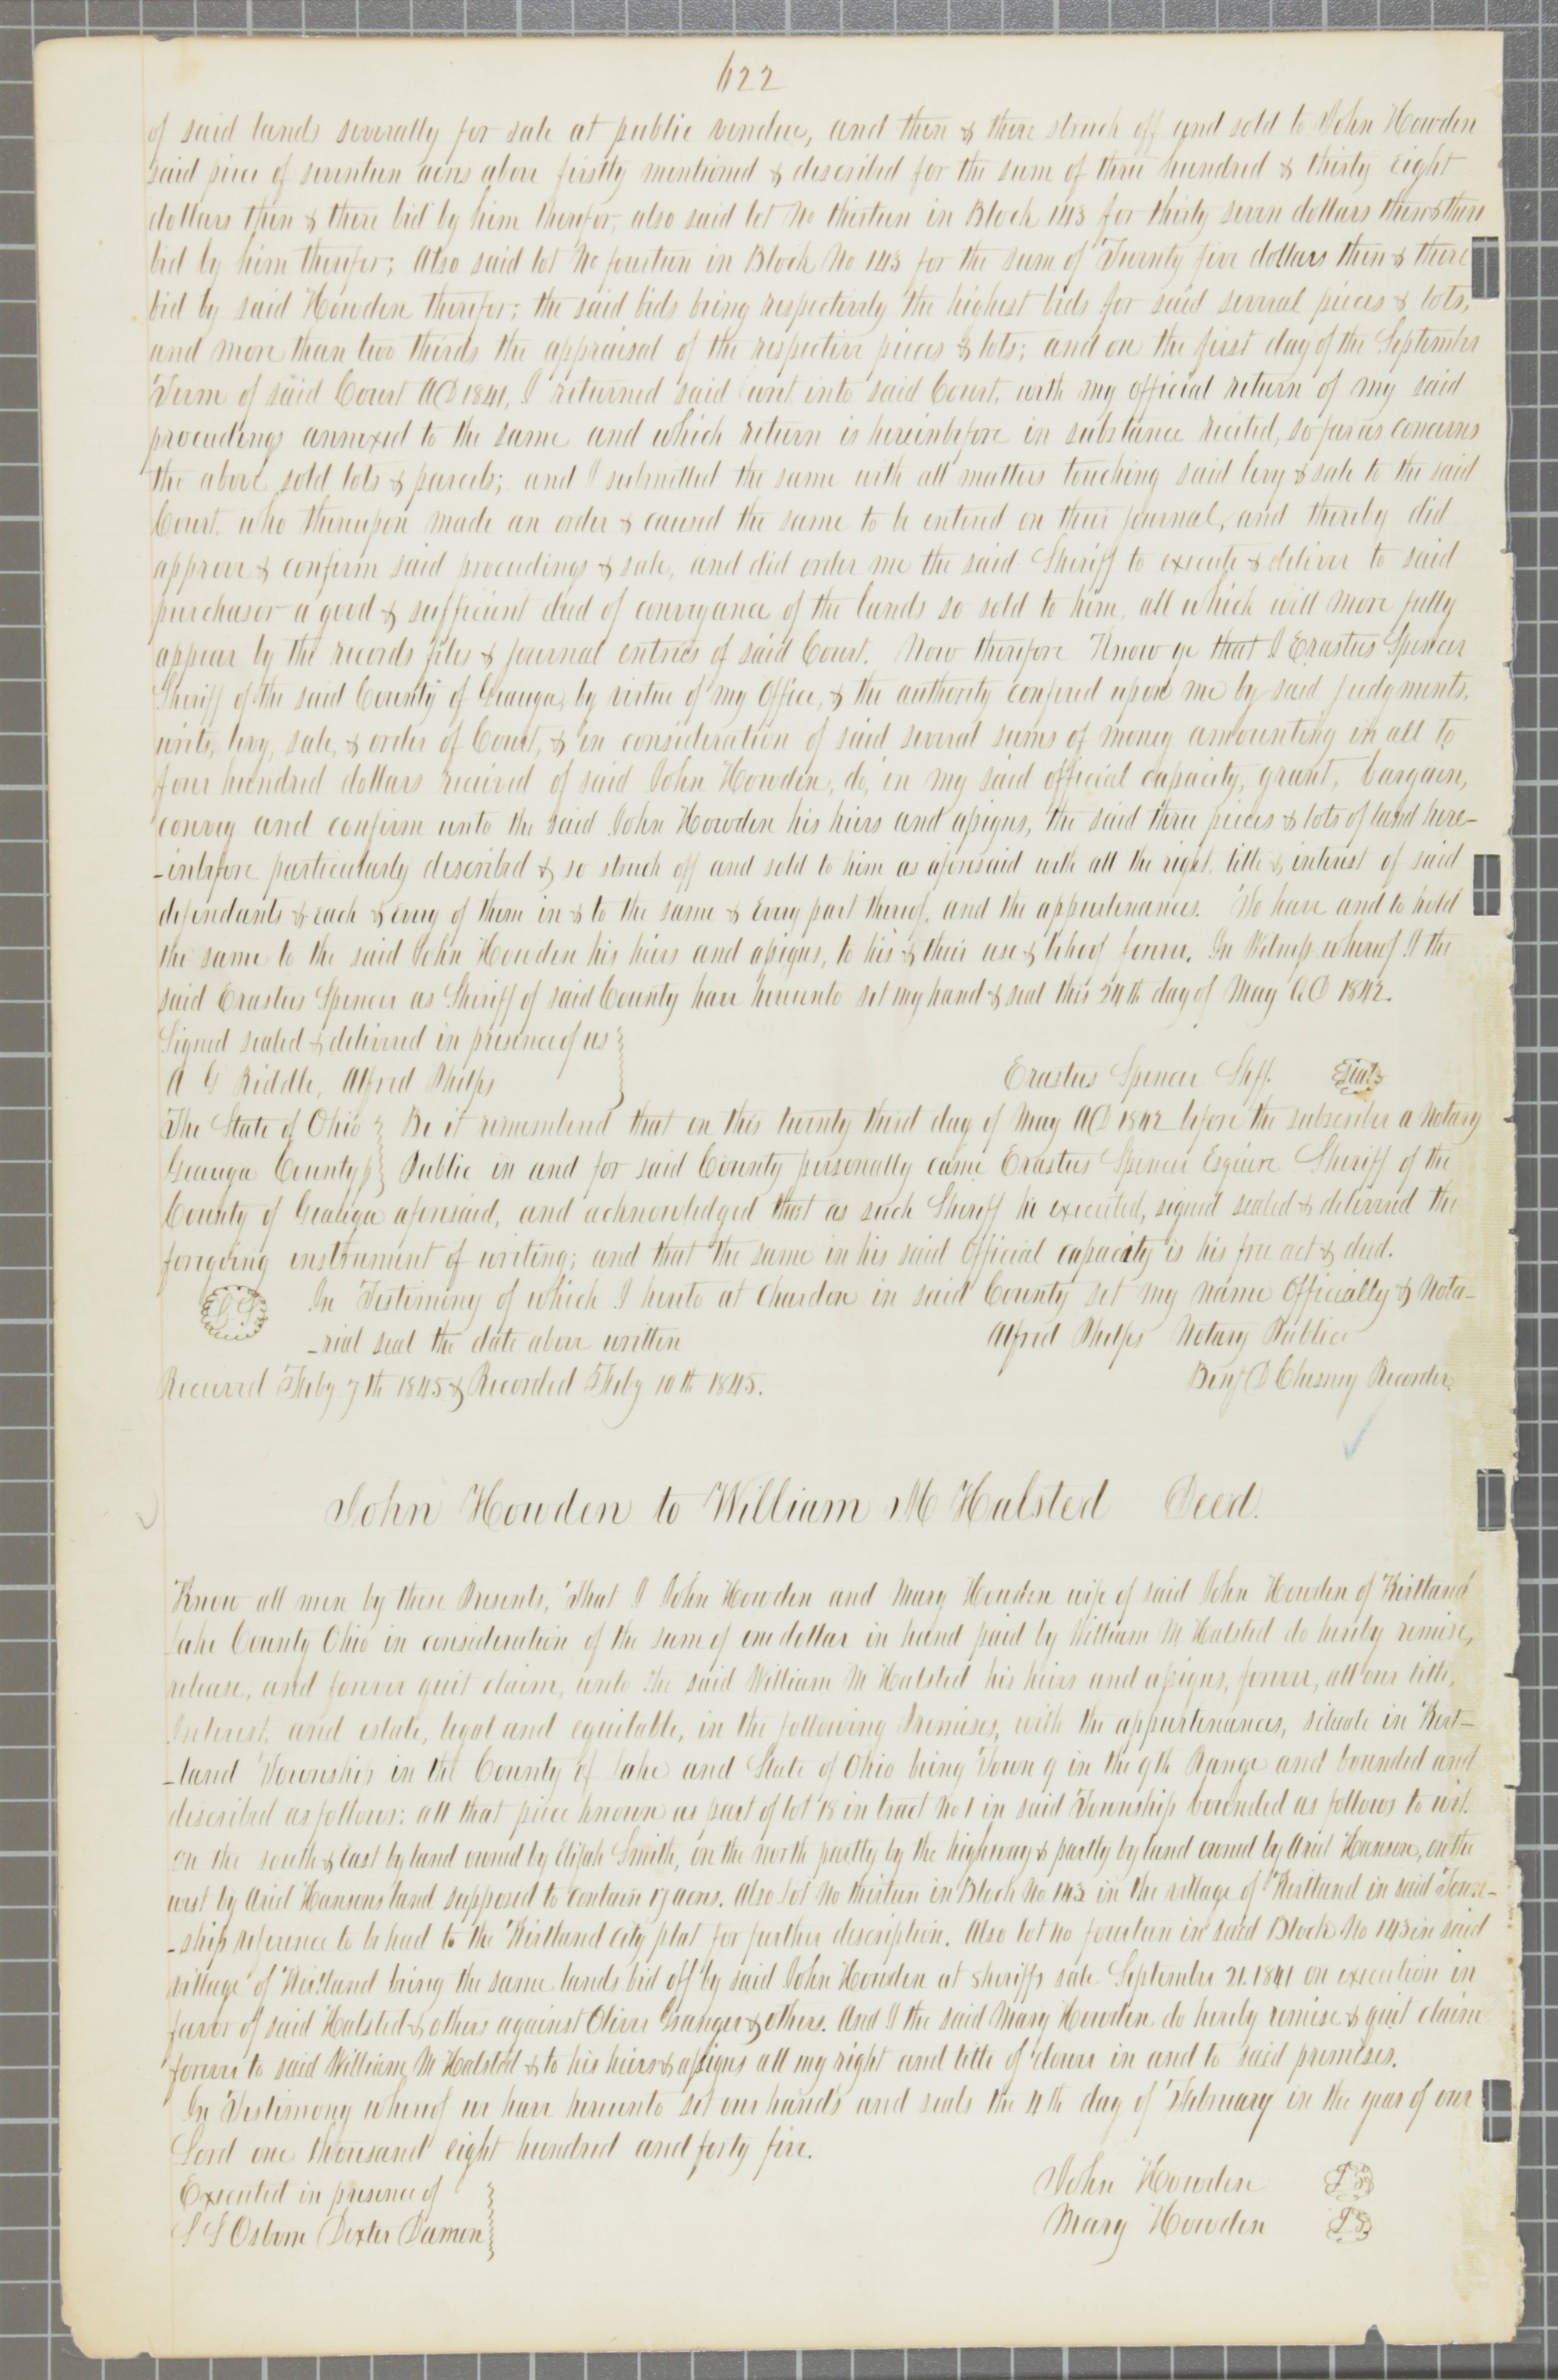 622
of said lands severally for sale at public vendue, and then & there struck off and sold to John Howden
said piece of seventeen acres above firstly mentioned & described for the sum of three hundred & thirty eight
dollars then & there bid by him therefor, also said lot No thirteen in Block 143 for thirty seven dollars then & there
bid by him therefor; Also said lot No fourteen in Block No 143 for the sum of Twenty five dollars then & there
bid by said Howden therefor; the said bids being respectively the highest bids for said several pieces & lots,
and more than two thirds the appraisal of the respective pieces & lots; and on the first day of the September
Term of said Court AD 1841, I returned said writ into said Court, with my official return of my said
proceedings annexed to the same and which return is hereinbefore in substance recited, so far as concerns
the above sold lots & parcels; and I submitted the same with all matters touching said levy & sale to the said
Court, who thereupon made an order & caused the same to be entered on their journal, and thereby did
approve & confirm said proceedings & sale, and did order me the said Sheriff to execute & deliver to said
purchasor a good & sufficient deed of conveyance of the lands so sold to him, all which will more fully
appear by the records files & journal entries of said Court. Now therefore Know ye that I Erastus Spencer
Sheriff of the said County of Geauga, by virtue of my Office, & the authority confered upon me by said judgments,
writs, levy, sale, & order of Court, & in consideration of said several sums of money amounting in all to
four hundred dollars received of said John Howden, do, in my said official capacity, grant, bargain,
convey and confirm unto the said John Howden his heirs and assigns, the said three pieces & lots of land here-
-inbefore particularly described & so struck off and sold to him as aforesaid with all the right, title & interest of said
defendants & each & every of them in & to the same & every part thereof, and the appurtenances. To have and to hold
the same to the said John Howden his heirs and assigns, to his & their use & behoof forever. In Witness whereof I the
said Erastus Spencer as Sheriff of said County have hereunto set my hand & seal this 24th day of May AD 1842.
Signed sealed & delivered in presence of us
A G Riddle, Alfred Phelps Erastus Spencer Shff. Seal
The State of Ohio Be it remembered that on this twenty third day of May AD 1842 before the subscriber a Notary
Geauga County Public in and for said County personally came Erastus Spencer Esquire Sheriff of the
County of Geauga aforesaid, and acknowledged that as such Sheriff he executed, signed sealed & delivered the
foregoing instrument of writing; and that the same in his said Official capacity is his free act & deed.
L.S. In Testimony of which I hereto at Chardon in said County set my name Officially & Nota-
-rial seal the date above written Alfred Phelps Notary Public
Received Feby 7th 1845 & Recorded Feby 10th 1845. Benj D Chesney Recorder.
John Howden to William M Halsted Deed.
Know all men by these Presents, That I John Howden and Mary Howden wife of said John Howden of Kirtland
Lake County Ohio in consideration of the sum of one dollar in hand paid by William M Halsted do hereby remise,
release, and forever quit claim, unto the said William M Halsted his heirs and assigns, forever, all our title,
Interest, and estate, legal and equitable, in the following Premises, with the appurtenances, situate in Kirt-
-land Township in the County of Lake and State of Ohio being Town 9 in the 9th Range and bounded and
described as follows: all that piece known as part of lot 18 in tract No 1 in said Township bounded as follows to wit.
on the south & east by land owned by Elijah Smith, on the north partly by the highway & partly by land owned by Ariel Hanson, on the
west by Ariel Hansons land supposed to contain 17 acres. Also lot No thirteen in Block No 143 in the village of Kirtland in said Town-
-ship reference to be had to the Kirtland city plat for further description. Also lot no fourteen in said Block No 143 in said
village of Kirtland being the same lands bid off by said John Howden at sheriffs sale September 21. 1841 on execution in
favor of said Halsted & others against Oliver Granger & others. And I the said Mary Howden do hereby remise & quit claim
forever to said William M Halsted & to his heirs & assigns all my right and title of dower in and to said premises.
In Testimony whereof we have hereunto set our hands and seals the 4th day of February in the year of our
Lord one thousand eight hundred and forty five.
Executed in presence of John Howden LS
S S Osborn Dexter Damon Mary Howden LS